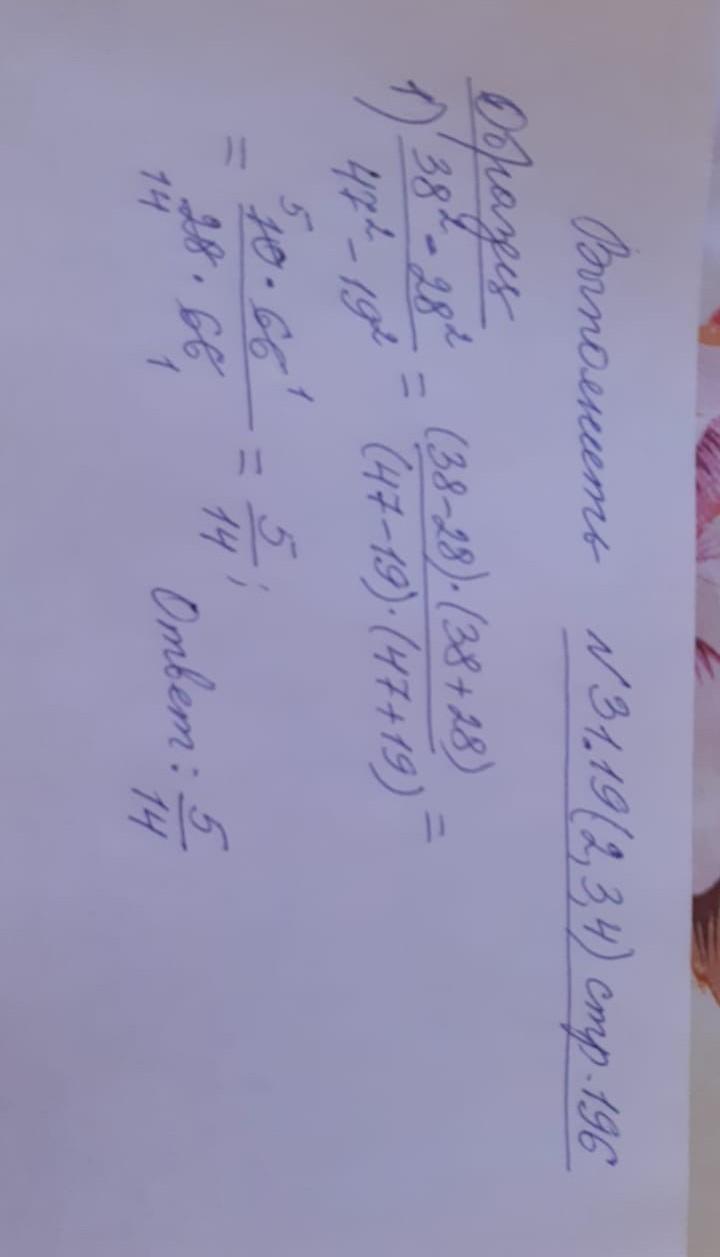 Выполнить №31.19(2,3,4) стр.196
Образец
1) (38² - 28²)/(47² - 19²) = ((38-28)·(38+28))/((47-19)·(47+19)) =
= (10·66)/(28·66) 5 1 14 1 = 5/14; Ответ: 5/14